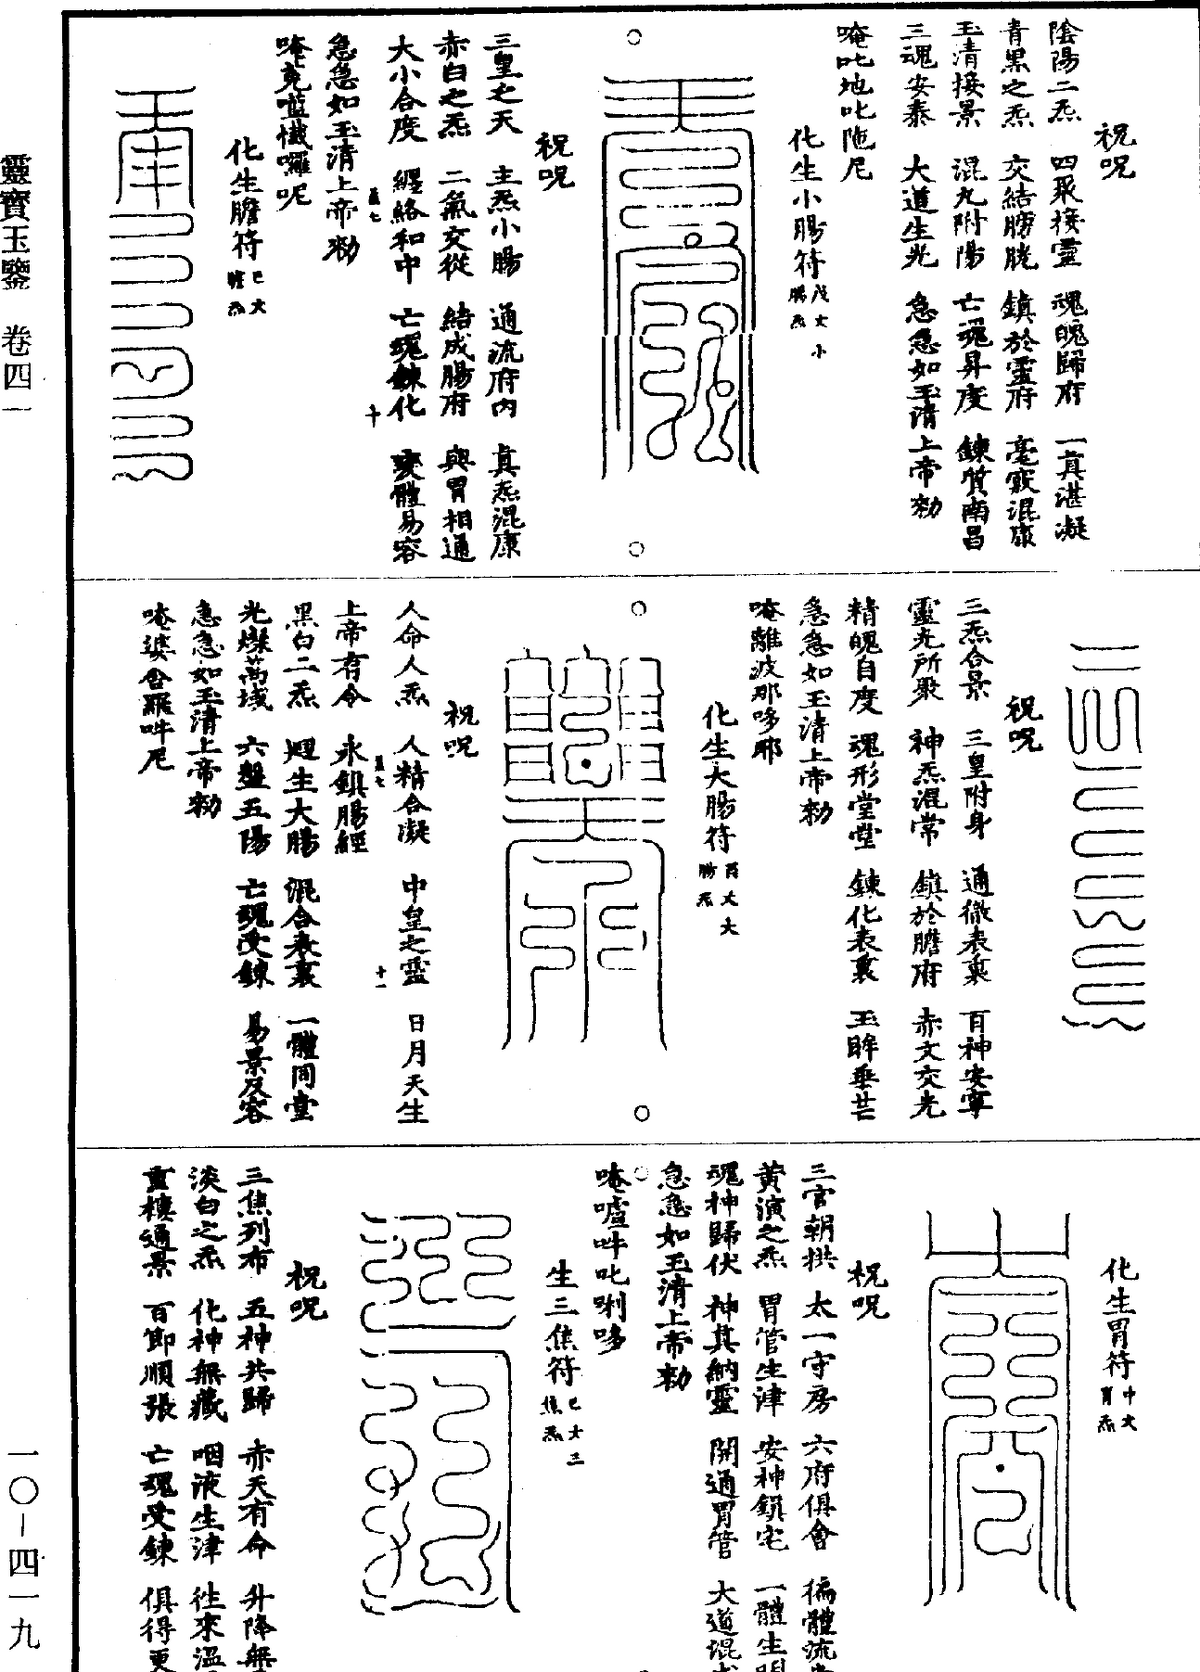 祝呪
陰陽二炁 四眾接靈 魂魄歸府 一真湛凝
青黑之炁 交結膀胱 鎮於靈府 毫竅混康
玉清接景 混九附陽 亡魂昇度 鍊質南昌
三魂安泰 大道生光 急急如玉清上帝勑
唵吡地吡陁尼
化生小腸符 戊文小腸炁
祝呪
三皇之天 主炁小腸 通流府內 真炁混康
赤白之炁 二氣交從 結成腸府 與胃相通
大小合度 纏絡和中 亡魂鍊化 變體易容
急急如玉清上帝勑
化生膽符 巳文膽炁
祝呪
三炁合景 三皇附身 通徹表裏 百神安寧
靈光所聚 神炁混常 鎮於膽府 赤文交光
精魄自度 魂形堂堂 鍊化表裏 玉眸垂芒
急急如玉清上帝勑
唵離波那哆耶
化生大腸符
祝呪
人命人炁 人精合凝 中皇之靈 日月天生
上帝有令 永鎮腸經
黑白二炁 𢌞生大腸 混合表裏 一體同堂
光燦萬域 六盤五陽 亡魂受鍊 易景反容
急急如玉清上帝勑
唵婆含羅吽尼
化生胃符 中文胃炁
祝呪
三官朝拱 太一守房 六府俱會 徧體流
黃演之炁 胃管生津 安神鎮宅 一體生
魂神歸伏 神其納靈 開通胃管 大道混
急急如玉清上帝勑
唵嚧吽叱唎哆
生三焦符 巳文三焦炁
祝呪
三焦列布 五神共歸 赤天有命 升降無
淡白之炁 化神無藏 咽液生津 往來溫
重樓通景 百節順張 亡魂受鍊 俱得更
靈寶玉鑒 卷四一
一〇—四一九